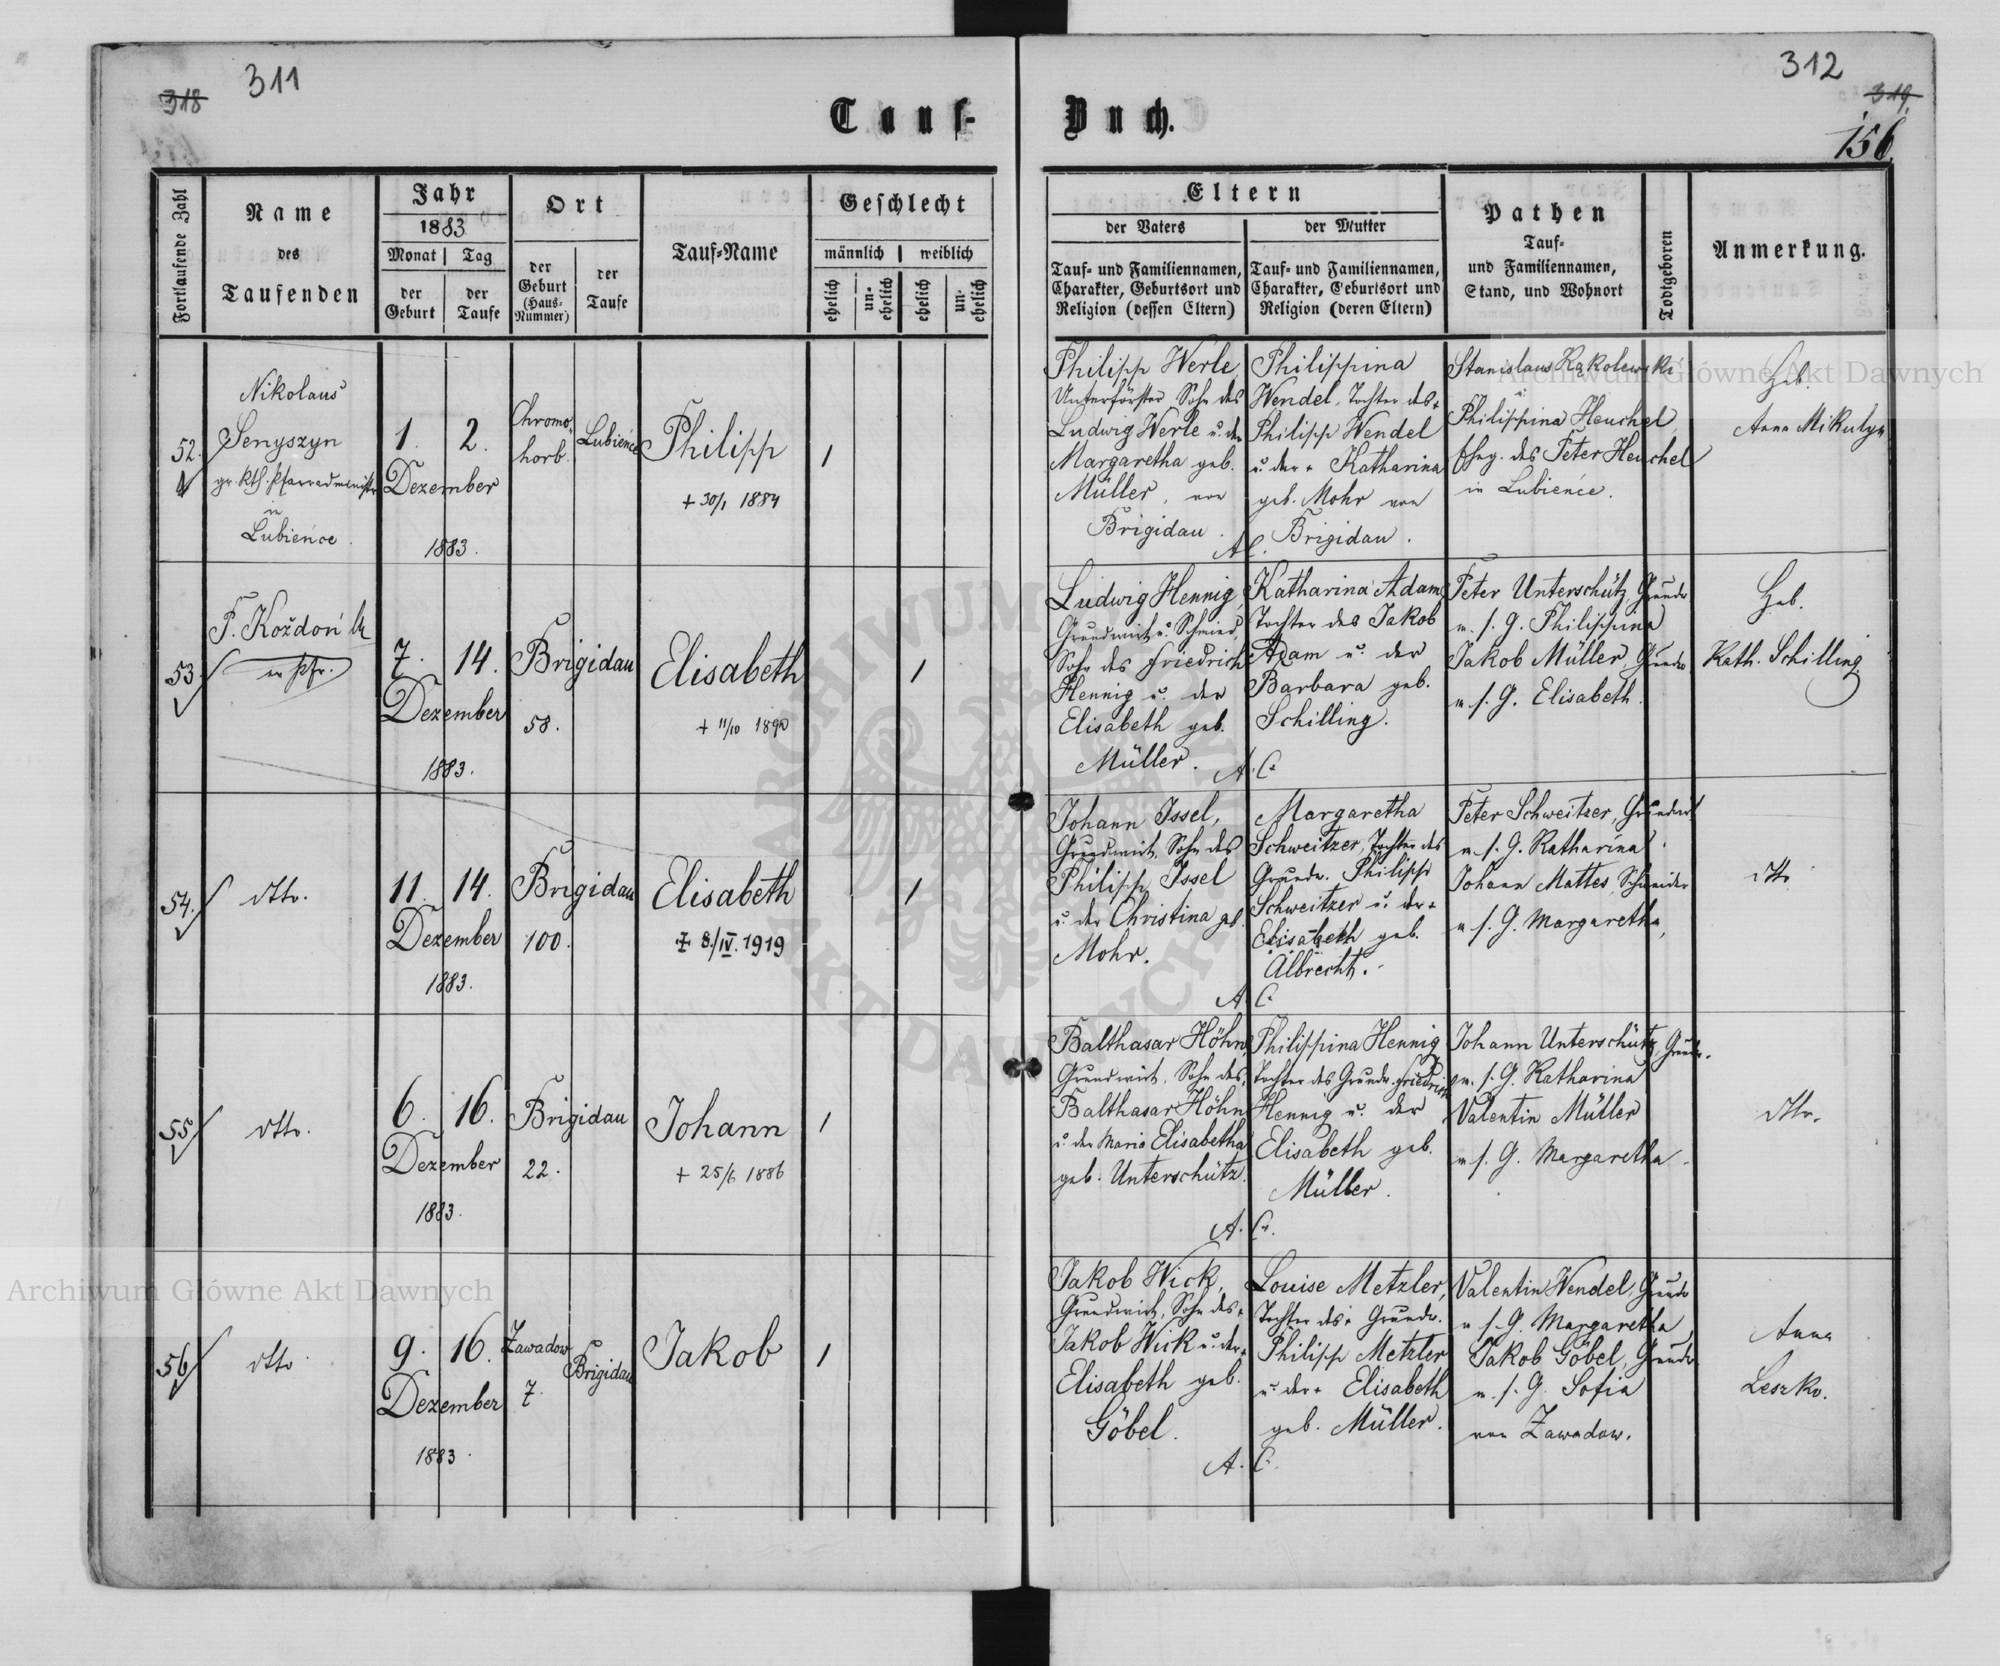 311
318
312
319
156
Tauf-
Buch.
Fortlaufende Zahl
Name
des
Taufenden
Jahr
1883
Monat
Tag
der
Geburt
der
Taufe
Ort
der
Geburt
(Haus-
Nummer)
der
Taufe
Tauf-Name
Geschlecht
männlich
weiblich
ehelich
un-
ehelich
ehelich
un-
ehelich
Eltern
der Vaters
der Mutter
Tauf- und Familiennamen,
Charakter, Geburtsort und
Religion (dessen Eltern)
Tauf- und Familiennamen,
Charakter, Geburtsort und
Religion (deren Eltern)
Pathen
Tauf-
und Familiennamen,
Stand, und Wohnort
Todtgeboren
Anmerkung.
52.
Nikolaus
Senyszyn
gr. kth. Pfarradministr
in
Lubieńce.
1. 2.
Dezember
1883.
Chromo-
horb.
Lubieńce
Philipp
+ 30/1 1884
1
Philipp Werle,
Unterförster, Sohn des
Ludwig Werle u. der
Margaretha geb.
Müller, von
Brigidau.
Philippina
Wendel, Tochter des
Philipp Wendel
u. der Katharina
geb. Mohr von
Brigidau.
A.C.
Stanislaus Kąkolewski
u.
Philippina Heuchel,
Eheg. des Peter Heuchel
in Lubieńce.
Heb.
Anna Mikulyn
53.
F. Koždoń
ev. Pfr.
7. 14.
Dezember
1883.
Brigidau
58.
Elisabeth
+ 11/10 1890
1
Ludwig Hennig,
Grundwirt u. Schmied,
Sohn des Friedrich
Hennig u. der
Elisabeth geb.
Müller.
Katharina Adam,
Tochter des Jakob
Adam u. der
Barbara geb.
Schilling.
A.C.
Peter Unterschütz, Grundw
m. s. G. Philippina
Jakob Müller Grundw.
m. s. G. Elisabeth.
Heb.
Kath. Schilling
54.
dtto.
11. 14.
Dezember
1883.
Brigidau
100.
Elisabeth
+ 8./IV. 1919
1
Johann Issel,
Grundwirt, Sohn des
Philipp Issel
u. der Christina geb.
Mohr.
Margaretha
Schweitzer, Tochter des
Grundw. Philipp
Schweitzer u. der
Elisabeth geb.
Albrecht.
A.C.
Peter Schweitzer, Grundwirt
m. s. G. Katharina
Johann Mattes, Schneider
m. s. G. Margaretha,
dtto
55.
dtto.
6. 16.
Dezember
1883.
Brigidau
22.
Johann
+ 25/6 1886
1
Balthasar Höhn,
Grundwirt, Sohn des
Balthasar Höhn
u. der Maria Elisabetha
geb. Unterschütz.
Philippina Hennig
Tochter des Grundw. Friedrich
Hennig u. der
Elisabeth geb.
Müller.
A.C.
Johann Unterschütz, Grundw.
m. s. G. Katharina
Valentin Müller
m. s. G. Margaretha
dtto.
56.
dtto
9. 16.
Dezember
1883.
Zawadow
7.
Brigidau
Jakob
1
Jakob Wick,
Grundwirt, Sohn des
Jakob Wick u. der
Elisabeth geb.
Göbel.
Louise Metzler,
Tochter des Grundw.
Philipp Metzler
u. der Elisabeth
geb. Müller.
A.C.
Valentin Wendel, Grundw
m. s. G. Margaretha
Jakob Göbel, Grundw
m. s. G. Sofia
von Zawadow.
Anna
Leszko.
Archiwum Główne Akt Dawnych
Archiwum Główne Akt Dawnych
ARCHIWUM GŁÓWNE AKT DAWNYCH